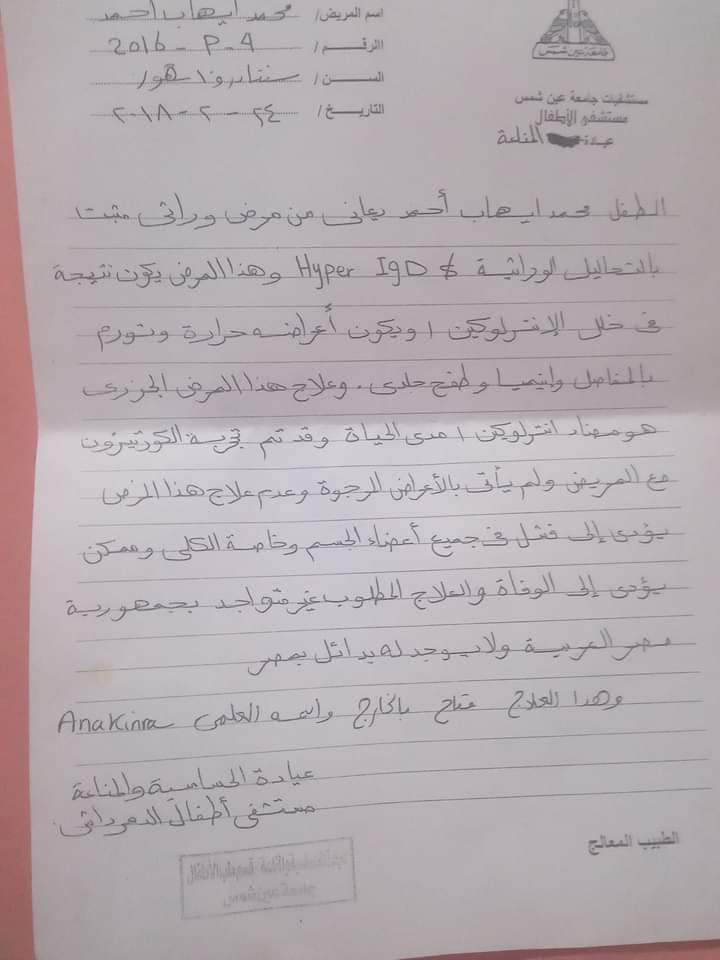 اسم المريض/ محمد ايهاب أحمد
الرقم / 2016 - P - 4
السن/ سنتان و ١٠ شهور
التاريخ/ ٢٤ - ٢ - ٢٠١٨
جامعة عين شمس
مستشفيات جامعة عين شمس
مستشفى الأطفال
عيادة المناعة
الطفل محمد ايهاب أحمد يعانى من مرض وراثى مثبت
بالتحاليل الوراثية Hyper IgD & وهذا المرض يكون نتيجة
فى خلل الإنترلوكين ١ ويكون أعراضه حرارة وتورم
بالمفاصل وانيميا وطفح جلدى . وعلاج هذا المرض الجزرى
هو مضاد انترلوكن ١ مدى الحياة وقد تم تجربة الكورتيزون
مع المريض ولم يأتى بالأعراض المرجوة وعدم علاج هذا المرض
يؤدى إلى فشل فى جميع أعضاء الجسم وخاصة الكلى وممكن
يؤدى إلى الوفاة والعلاج المطلوب غير متواجد بجمهورية
مصر العربية ولا يوجد له بدائل بمصر
وهذا العلاج متاح بالخارج واسمه العلمى Anakinra
عيادة الحساسية والمناعة
مستشفى أطفال الدمرداش
الطبيب المعالج